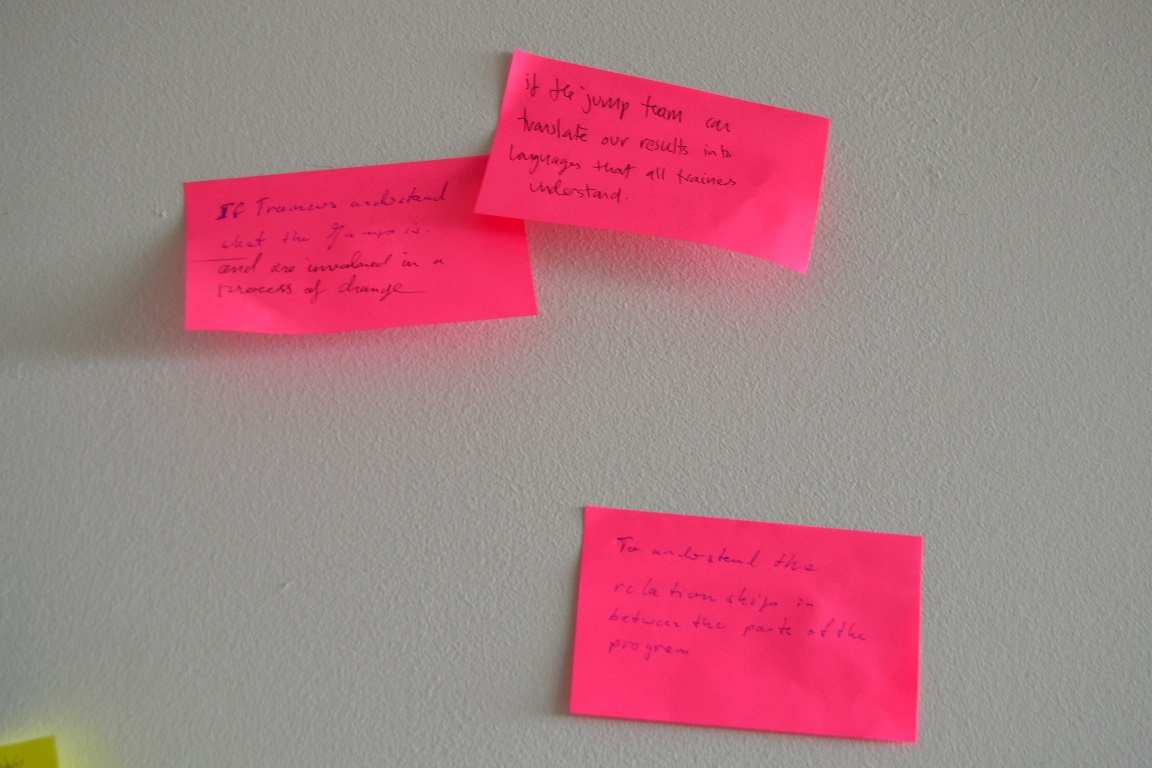 if the jump team can
translate our results into
languages that all trainers
understand.
If Trainers understand
what the Jump is
and are involved in a
process of change
To understand the
relation ship in
between the parts of the
program